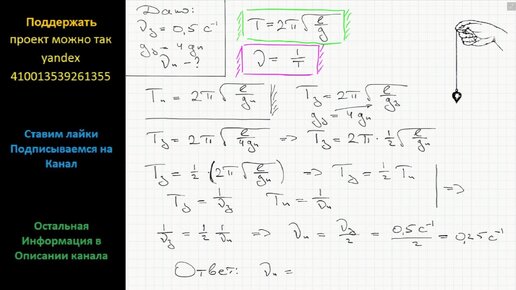 Поддержать
проект можно так
yandex
410013539261355
Ставим лайки
Подписываемся на
Канал
Остальная
Информация в
Описании канала
Дано:
ν_з = 0,5 с⁻¹
g_з = 4g_л
ν_л - ?
T = 2π√(ℓ/g)
ν = 1/T
T_л = 2π√(ℓ/g_л)
T_з = 2π√(ℓ/g_з)
g_з = 4g_л
T_з = 2π√(ℓ/4g_л) => T_з = 2π·½√(ℓ/g_л)
T_з = ½·(2π√(ℓ/g_л)) => T_з = ½T_л
T_з = 1/ν_з T_л = 1/ν_л =>
1/ν_з = ½ 1/ν_л => ν_л = ν_з/2 = 0,5 с⁻¹/2 = 0,25 с⁻¹
Ответ: ν_л =